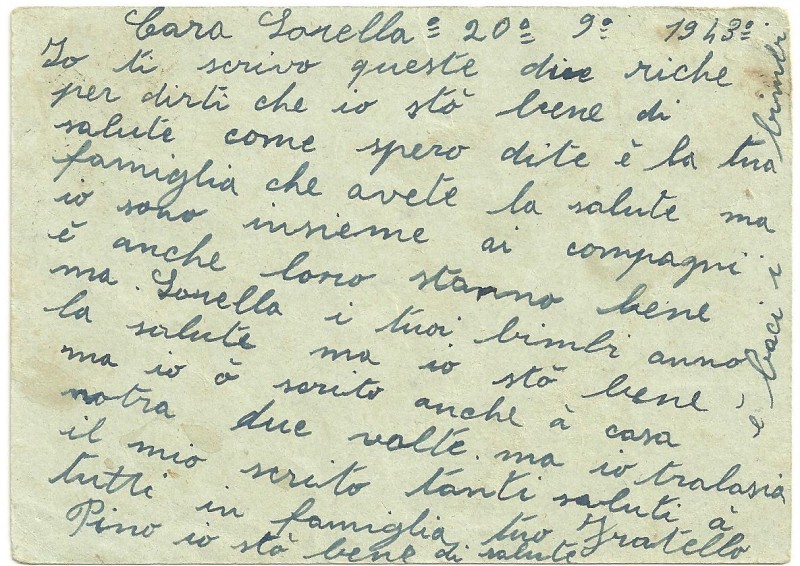 Cara Sorella º 20º 9º 1943º
Io ti scrivo queste due riche
per dirti che io stò bene di
salute come spero dite è la tua
famiglia che avete la salute ma
io sono insieme ai compagni
è anche loro stanno bene
ma Sorella i tuoi bimbi anno
la salute ma io stò bene
ma io ò scrito anche à casa
notra due volte ma io tralasia
il mio scrito tanti saluti à
tutti in famiglia tuo Fratello
Pino io stò bene di salute
e baci i bimbi